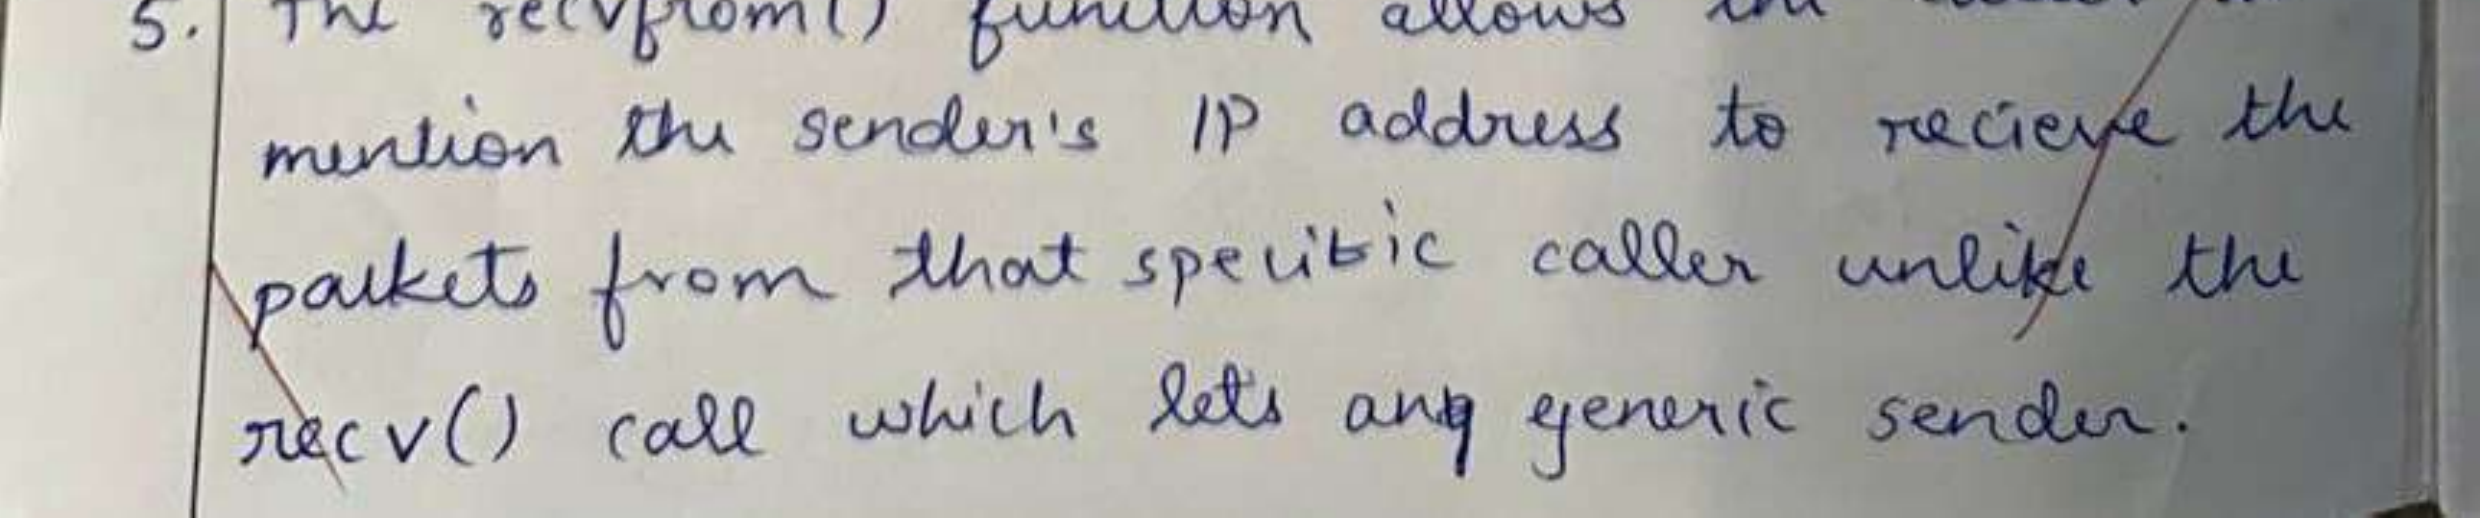 5. The recvfrom() function allows the
mention the sender's IP address to recieve the
packets from that specific caller unlike the
recv() call which let's any generic sender.